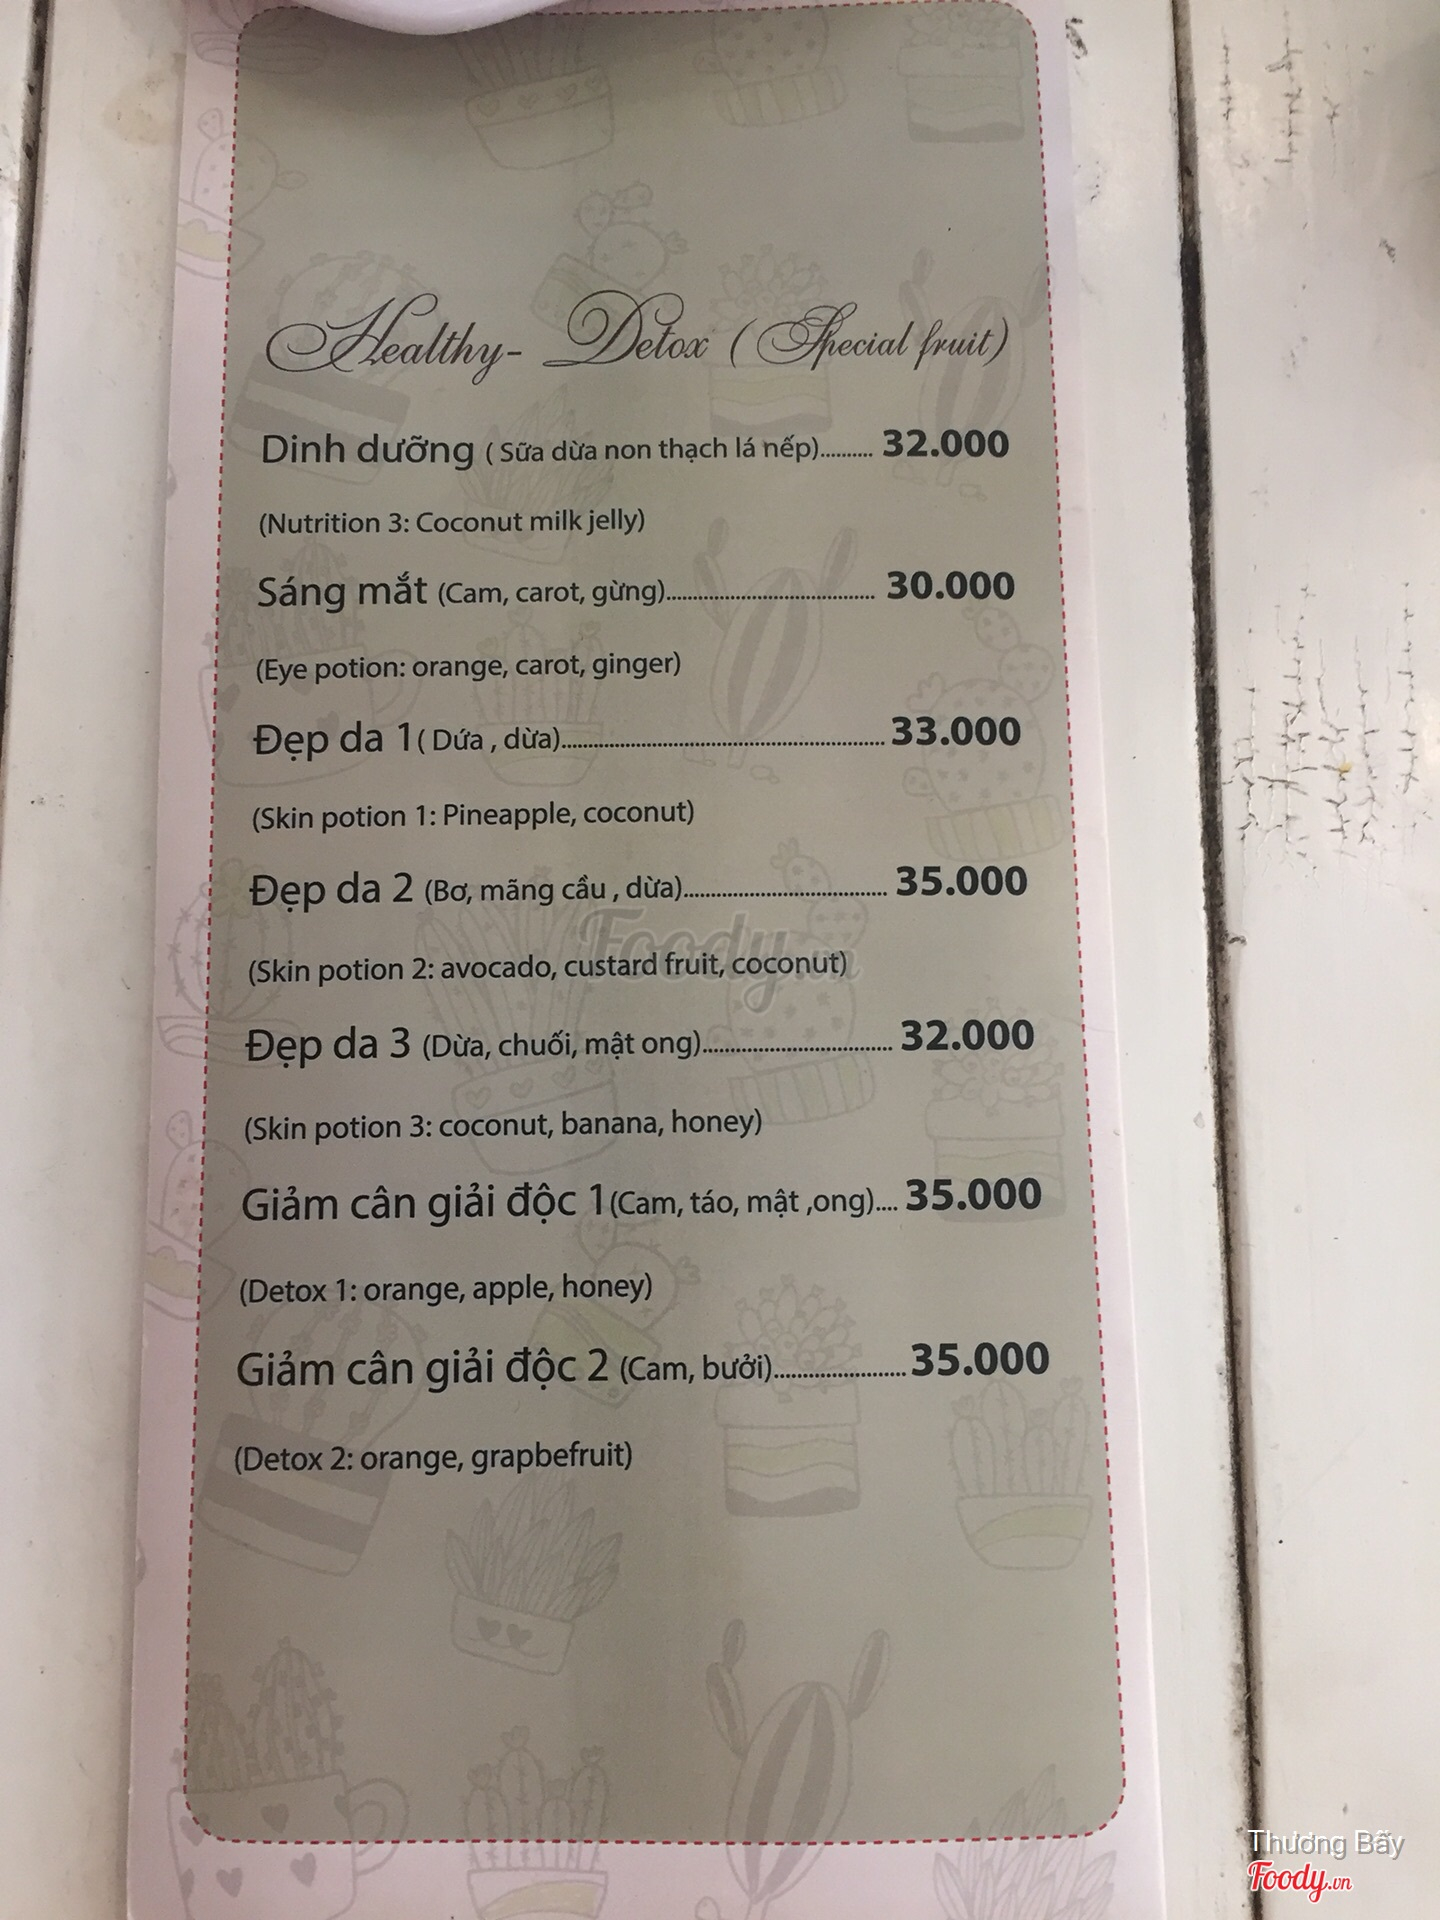 Healthy- Detox ( Special fruit)
Dinh dưỡng ( Sữa dừa non thạch lá nếp).......... 32.000
(Nutrition 3: Coconut milk jelly)
Sáng mắt (Cam, carot, gừng)........................................ 30.000
(Eye potion: orange, carot, ginger)
Đẹp da 1( Dứa , dừa).............................................................. 33.000
(Skin potion 1: Pineapple, coconut)
Đẹp da 2 (Bơ, mãng cầu , dừa)....................................... 35.000
(Skin potion 2: avocado, custard fruit, coconut)
Đẹp da 3 (Dừa, chuối, mật ong).................................... 32.000
(Skin potion 3: coconut, banana, honey)
Giảm cân giải độc 1(Cam, táo, mật ,ong).... 35.000
(Detox 1: orange, apple, honey)
Giảm cân giải độc 2 (Cam, bưởi)........................ 35.000
(Detox 2: orange, grapbefruit)
Foody.vn
Thương Bẫy
Foody.vn